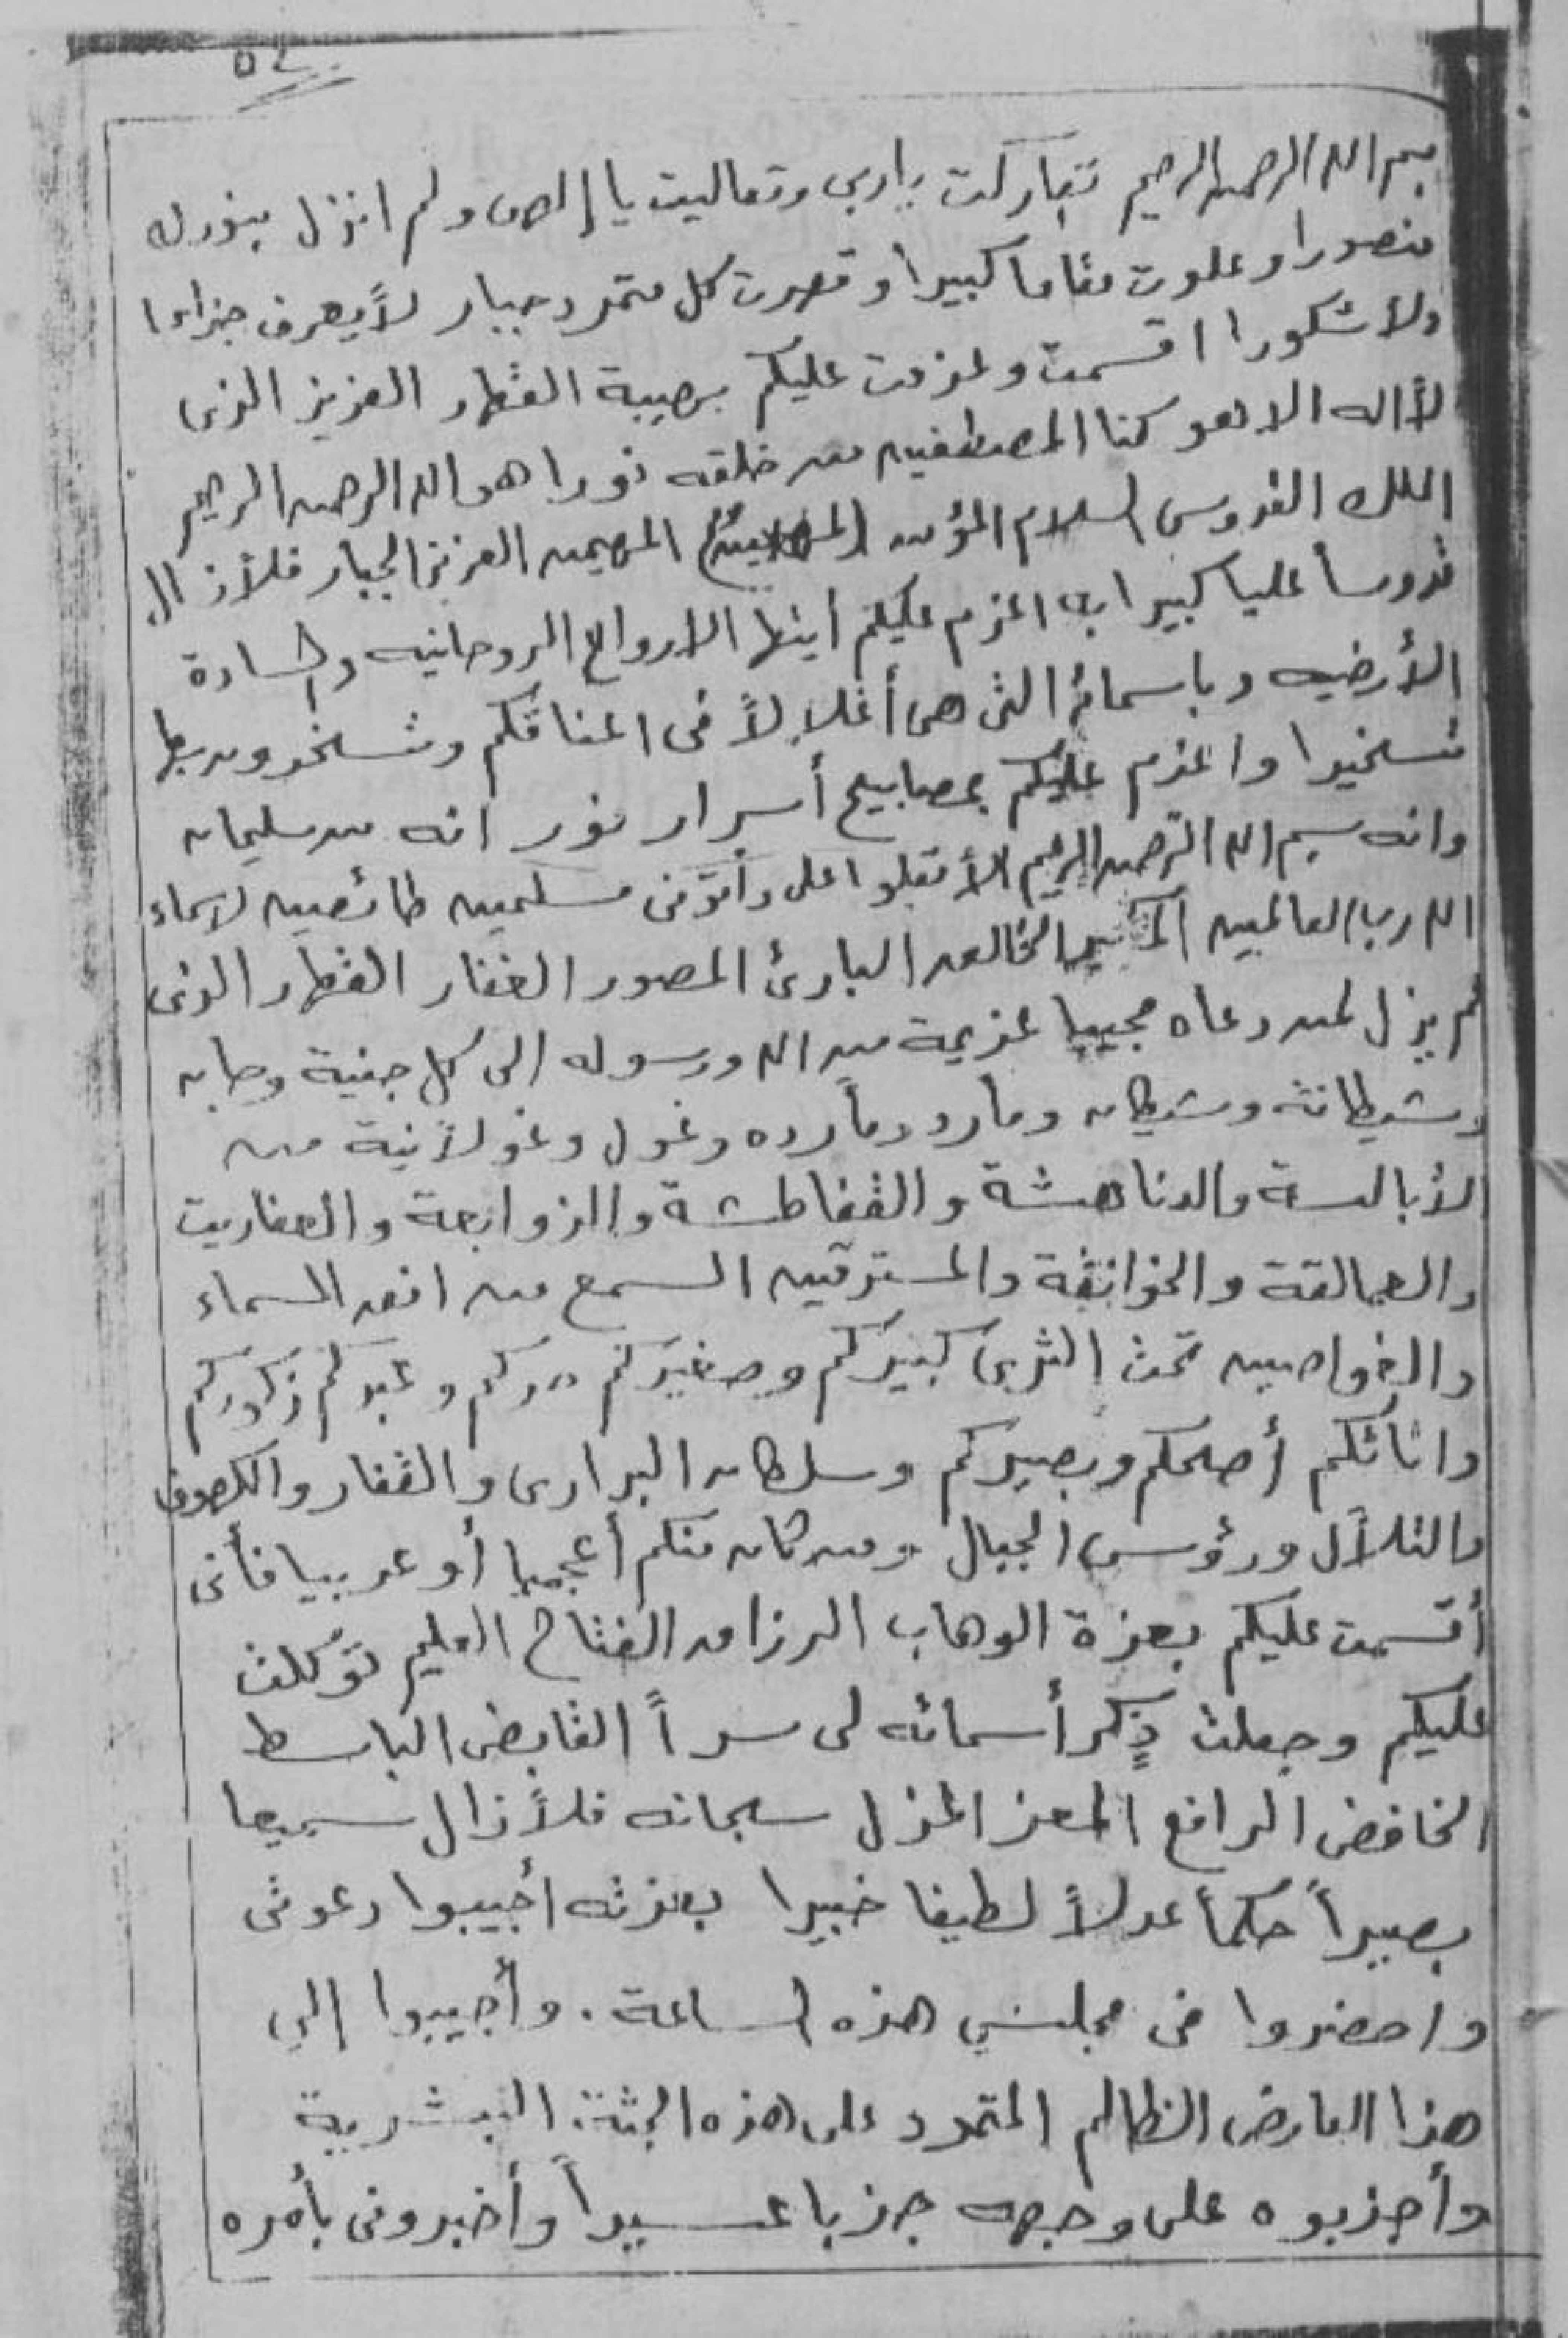 ٥٤
بسم الله الرحمن الرحيم تباركت ياربى وتعاليت يا إلهى ولم انزل بنورك
منصورا وعلوت مقاما كبيرا وقهرت كل متمرد جبار لا يعرف جزاءا
ولا شكورا اقسمت وعزمت عليكم بهيبة القهار العزيز الذى
لا اله الا هو كنا المصطفين من خلقه نورا هو الله الرحمن الرحيم
الملك القدوس السلام المؤمن المهيمن العزيز الجبار فلا زال
قدوسا عليا كبيرا به اعزم عليكم ايتها الارواح الروحانيه والسادة
الأرضيه وباسمائه التى هى أغلالاً فى اعناقكم وتسخرون بها
تسخيرا واعزم عليكم بمصابيح أسرار نور انه من سليمان
وانه بسم الله الرحمن الرحيم الا تعلوا على وأتونى مسلمين طائعين لاسماء
الله رب العالمين الخالق البارئ المصور الغفار القهار الذى
لم يزل لمن دعاه مجيبا عزيمة من الله ورسوله الى كل جنية وجان
وشيطانة وشيطان ومارد ومارده وغول وغولانية من
الأبالسة والدناهشة والقفاطشة والزوابعة والعفاريت
والعمالقة والخوانقة والمسترقين السمع من افق السماء
والغواصين تحت الثرى كبيركم وصغيركم حركم وعبدكم ذكوركم
واناثكم أصمكم وبصيركم وسلطان البرارى والقفار والكهوف
والتلال ورؤس الجبال ومن كان منكم أعجميا أو عربيا فأنى
أقسمت عليكم بعزة الوهاب الرزاق الفتاح العليم توكلت
عليكم وجعلت ذكر أسمائه لى سراً القابض الباسط
الخافض الرافع المعز المذل سبحانه فلا زال سميعا
بصيراً حكماً عدلاً لطيفا خبيرا بعزته أجيبوا دعوتى
واحضروا فى مجلسي هذه الساعة. وأجيبوا إلي
هذا العارض الظالم المتمرد على هذه الجثة البشرية
وأجذبوه على وجهه جذبا عسيراً وأخبرونى بأمره